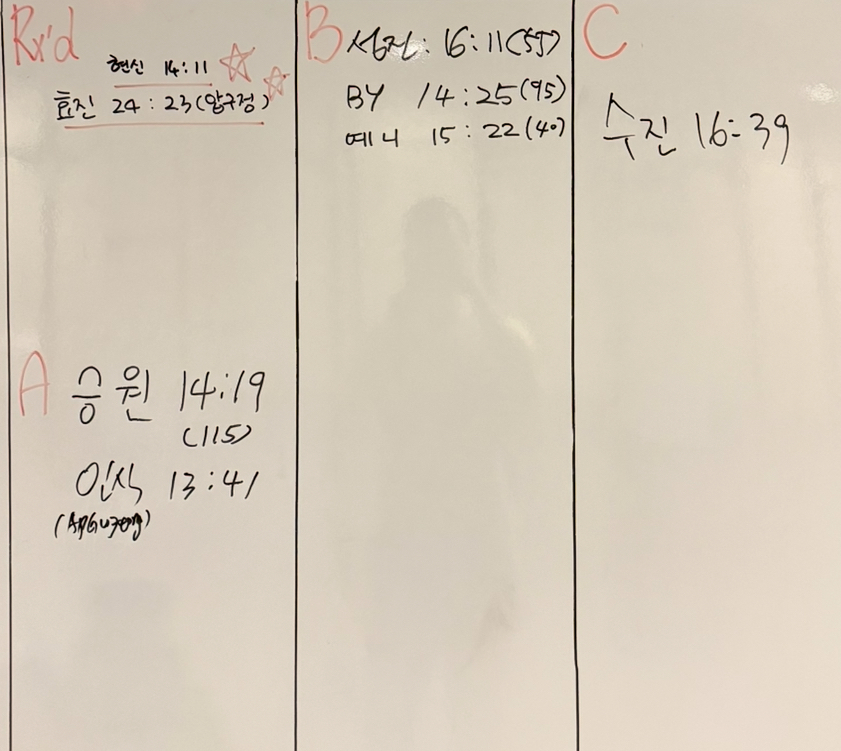 Rx'd
현신 14:11
효진 24:23(압구정)
A
승원 14:19
(115)
인식 13:41
B
성진: 16:11(55)
BY 14:25(95)
예니 15:22(40)
C
수진 16:39